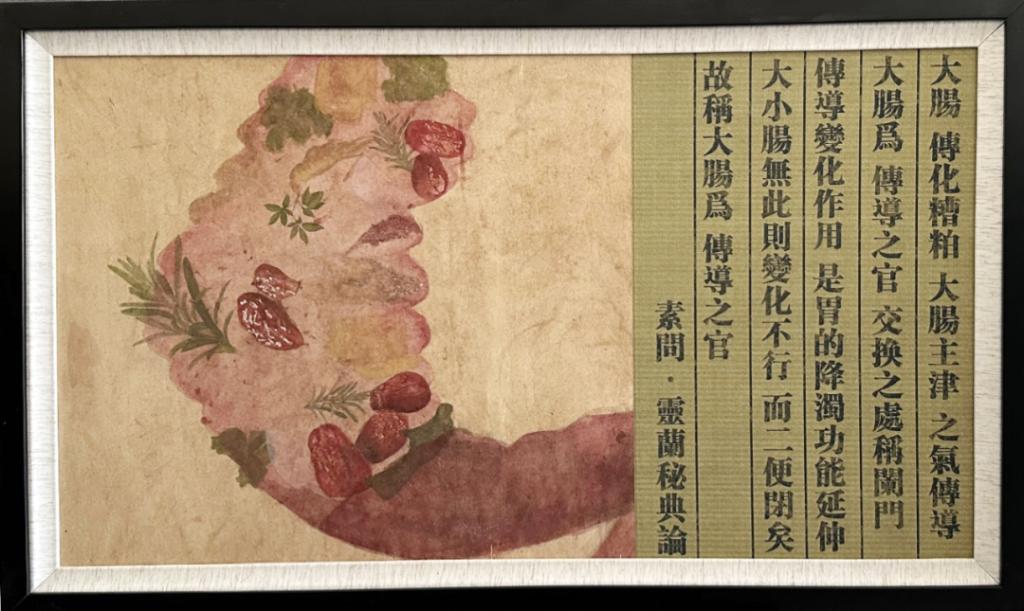 大腸 傳化糟粕 大腸主津 之氣傳導
大腸爲 傳導之官 交換之處稱闌門
傳導變化作用 是胃的降濁功能延伸
大小腸無此則變化不行 而二便閉矣
故稱大腸爲 傳導之官
素問·靈蘭秘典論